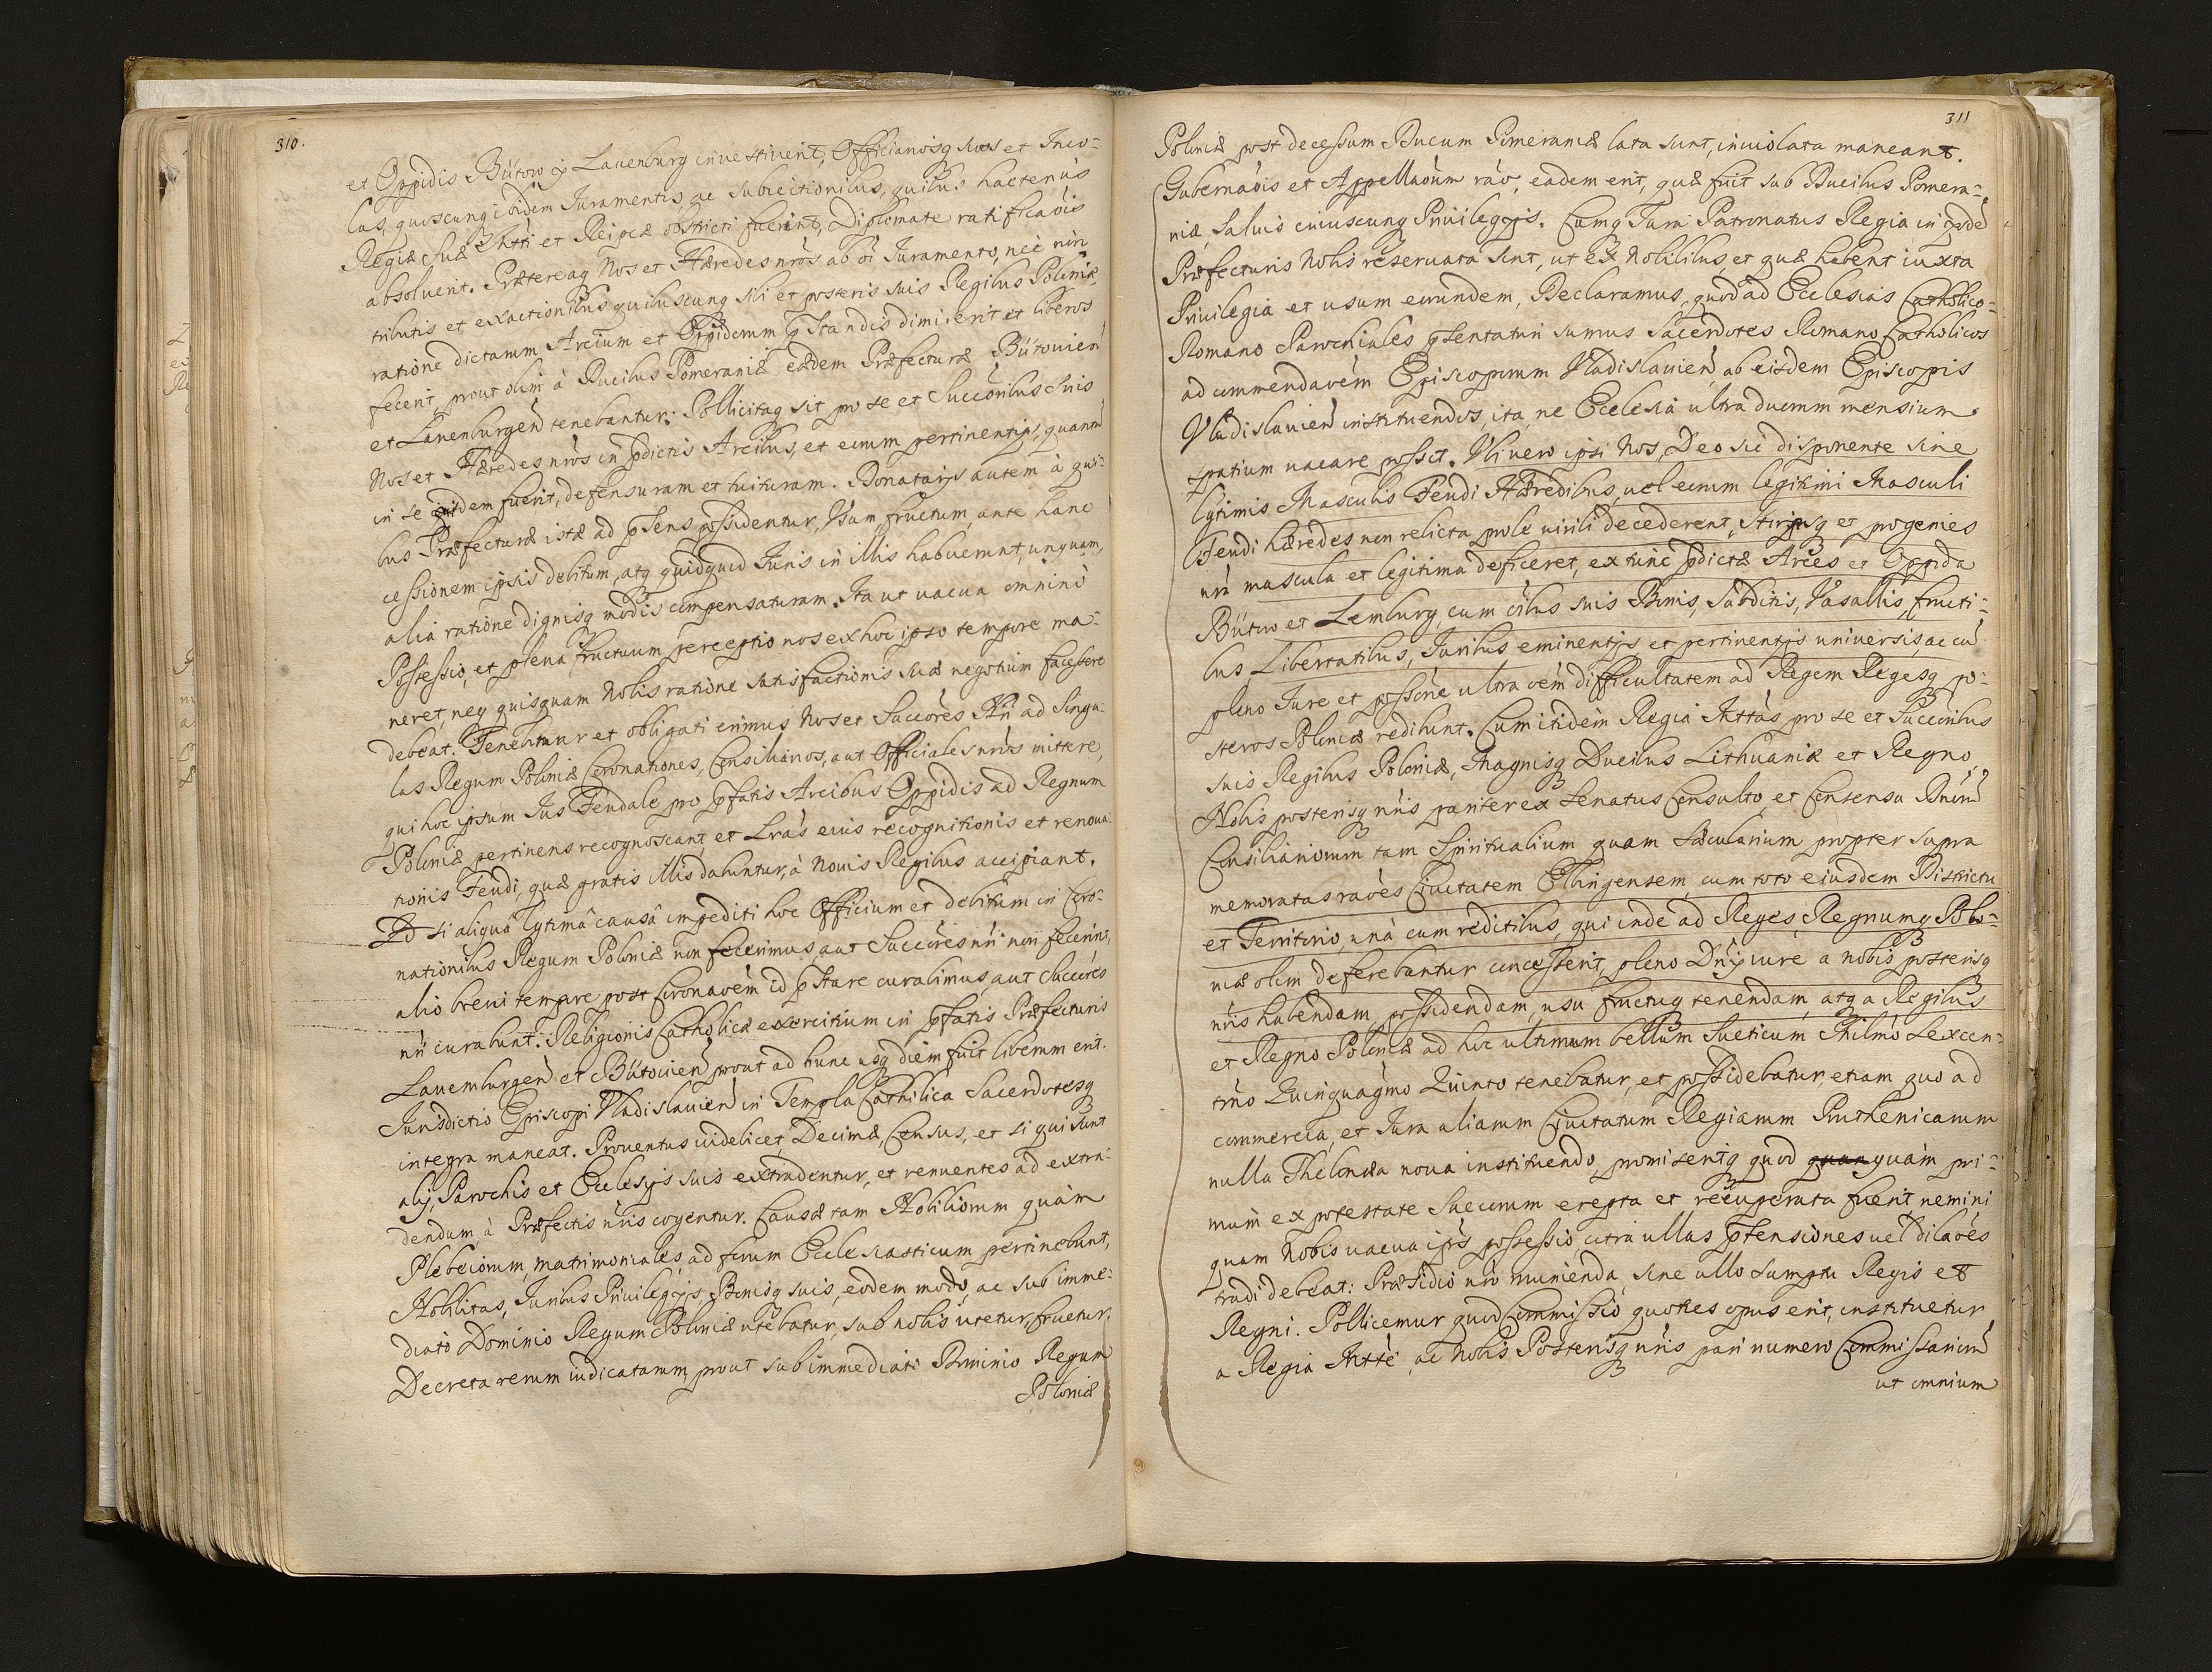 310.
et Oppidis Bütow & Lauenburg inuestiuerit, Officianosq suos et Inco-
las, quoscunq ibidem Iuramentis, ac subiectionibus, quibus hactenùs
Regiæ suæ Mtti et Reipcæ obstricti fuerint, Diplomate ratificaõis
absoluent. Prætereaq Nos et Hæredes nrõs ab oi Iuramento, nec non
tributis et exactionibus quibuscunq sibi et posteris suis Regibus Poloniæ,
ratione dictarum Arcium et Oppidorum pstandis dimiserit et liberos
fecerit, prout olim à Ducibus Pomeraniæ eædem Præfecturæ Bütouien
et Lauenburgen tenebantur: Pollicitaq sit pro se et Succoribus suis
Nos et Hæredes nrõs in pdictis Arcibus, et eorum pertinentijs, quantũ
in se quidem fuerit, defensuram et tuituram. Donatarijs autem à qui-
bus Præfecturæ istæ ad psens possidentur, Vsum fructum, ante hanc
cessionem ipsis debitum, atq quidquid Iuris in illis habuerunt unquam,
alia ratione dignisq modis compensaturam. Ita ut uacua omninò
Possessio, et plena fructuum perceptio nos ex hoc ipso tempore ma-
neret, neq quisquam Nobis ratione satisfactionis suæ negotium facessere
debeat. Tenebimur et obligati erimus Nos et Succores Nri ad singu-
las Regum Poloniæ Coronationes, Consiliarios, aut Officiales nrõs mittere,
qui hoc ipsum Ius Feudale pro pfatis Arcibus Oppidis ad Regnum
Poloniæ pertinens recognoscant, et Lras eius recognitionis et renoua-
tionis Feudi, quæ gratis illis dabuntur, à Nouis Regibus accipiant.
Qd si aliquâ lgtimâ causâ impediti hoc Officium et debitum in Coro-
nationibus Regum Poloniæ non fecerimus, aut Succores nri non fecerint,
alio breui tempore post Coronaõem id pstare curabimus, aut Succores
nri curabunt. Religionis Catholicæ exercitium in pfatis Præfecturis
Lauemburgen et Bütouien prout ad hunc usq diem fuit liberum erit.
Iurisdictio Episcopi Vladislauien in Templa Catholica Sacerdotesq
integra maneat. Prouentus uidelicet, Decimæ, Census, et si qui sunt
alij, Parochis et Ecclesijs suis extradentur, et renuentes ad extra-
dendum, à Præfectis nris cogentur. Causæ tam Nobiliorum quàm
Plebeiorum, matrimoniales, ad forum Ecclesiasticum pertinebunt,
Nobilitas, Iuribus Priuilegijs, Bonisq suis, eodem modo, ac sub imme-
diato Dominio Regum Poloniæ utebatur, sub nobis utetur, fruetur,
Decreta rerum iudicatarum, prout sub immediato Dominio Regum
Poloniæ
311
Poloniæ post decessum Ducum Pomeraniæ lata sunt, inuiolata maneant.
Gubernaõis et Appellaõum raõ, eadem erit, quæ fuit sub Ducibus Pomera-
niæ, saluis cuiuscunq Priuilegijs. Cumq Iura Patronatus Regia in ijsdẽ
Præfecturis Nobis reseruata sint, ut Ex Nobilibus, et quæ habent iuxta
Priuilegia et usum eorundem, Declaramus, quod ad Ecclesias Catholico-
Romano Parochiales psentaturi sumus Sacerdotes Romano Catholicos
ad commendaõem Episcoporum Vladislauien ab eisdem Episcopis
Vladislauien instituendos, ita, ne Ecclesia ultra duorum mensium
spatium uacare possit. Vbi uero ipsi Nos, Deo sic disponente sine
lgtimis Masculis Feudi Hæredibus, uel eorum legitimi Masculi
Feudi hæredes non relicta prole uirili decederent, stirpsq et progenies
nra mascula et legitima deficeret, ex tunc pdictæ Arces et Oppida
Bütow et Lemburg, cum oibus suis Bonis, Subditis, Vasallis, fructi-
bus Libertatibus, Iuribus eminentijs et pertinentijs uniuersis, ac cũ
pleno Iure et possone ultra oem difficultatem ad Regem Regesq po-
steros Poloniæ redibunt. Cum itidem Regia Mttas, pro se et Succoribus
suis Regibus Poloniæ, Magnisq Ducibus Lithuaniæ et Regno,
Nobis posterisq nris pariter ex Senatus Consulto, et Consensu Dnorũ
Consiliariorum tam Spiritualium quam Sæcularium propter supra
memoratas raões Ciuitatem Elbingensem, cum toto eiusdem Districtu
et Territorio, unà cum reditibus, qui inde ad Reges, Regnumq Polo-
niæ olim deferebantur concesserit, pleno Dnij iure a nobis posterisq
nris habendam, possidendam, usu fructuq tenendam, atq a Regibus
et Regno Poloniæ ad hoc ultimum bellum Sueticum Millmo Sexcen-
tmo Quinquagmo Quinto tenebatur, et possidebatur, etiam quo ad
commercia, et Iura aliarum Ciuitatum Regiarum Pruthenicarum
nulla Thelonea noua instituendo, promiseritq quod quam quàm pri-
mum ex potestate Suecorum erepta et recuperata fuerit, nemini
quam Nobis uacua ipsius possessio, citra ullas ptensiones uel dilaões
tradi debeat: Præsidio nro munienda sine ullo sumptu Regis et
Regni. Pollicemur quod Commissio, quoties opus erit, instituetur
a Regia Mtte, ac Nobis Posterisq nris pari numero Commissariorũ
ut omnium